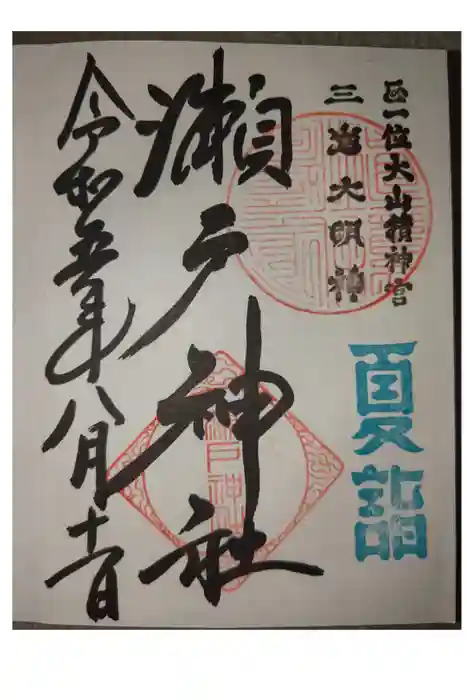 正一位大山積神宮
三島大明神
夏詣
瀬戸神社
令和五年八月十一日